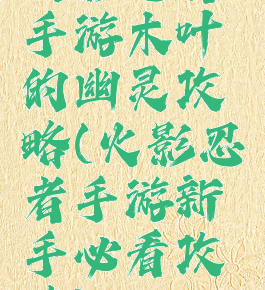 手游木叶
的幽灵攻
略(火影忍
者手游新
手必看攻